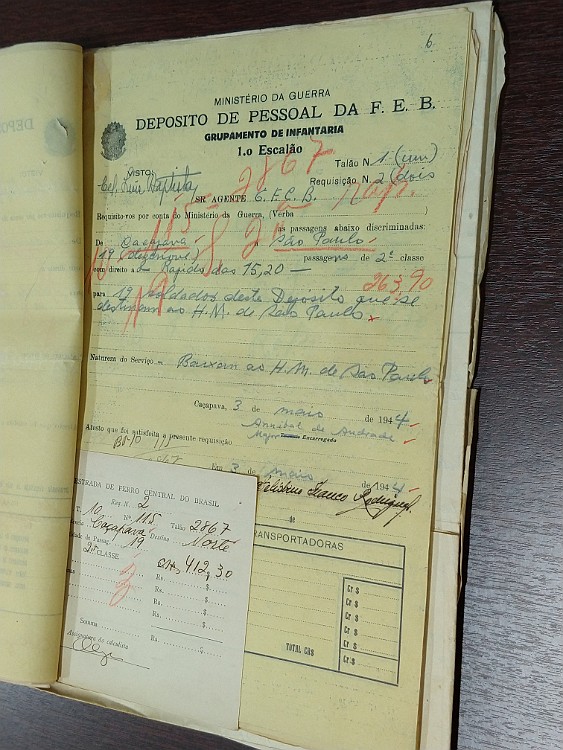 6
MINISTÉRIO DA GUERRA
DEPOSITO DE PESSOAL DA F. E. B.
GRUPAMENTO DE INFANTARIA
1.o Escalão
VISTO:
Talão N. 1 (um)
2867
Cel. Luiz Baptista
Requisição N. 2 (dois
SR. AGENTE E. F. C. B.
Requisito-vos por conta do Ministério da Guerra, (Verba )
as passagens abaixo discriminadas:
De Caçapava a São Paulo
19 (dezenove) passagens de 2ª classe
com direito a — rapido das 15,20 —
263,90
para 19 soldados deste Depósito que se
destinam ao H. M. de São Paulo
Natureza do Serviço — Baixam ao H. M. de São Paulo
Caçapava, 3 de maio de 1944
Annibal de Andrade
Atesto que foi satisfeita a presente requisição
Major Encarregado
Em 3 de maio de 1944
Franco Rodrigues
TRANSPORTADORAS
Cr $
Cr $
Cr $
Cr $
Cr $
TOTAL CR$ Cr $
ESTRADA DE FERRO CENTRAL DO BRASIL
Req. N. 2
T. 10 Nº 115 Talão 2867
Caçapava Destino Norte
de Passag. 19
2ª CLASSE Cr$ 412,30
Rs. $
Rs. $
Rs. $
Rs. $
Somma Rs. $
Assignatura do calculista